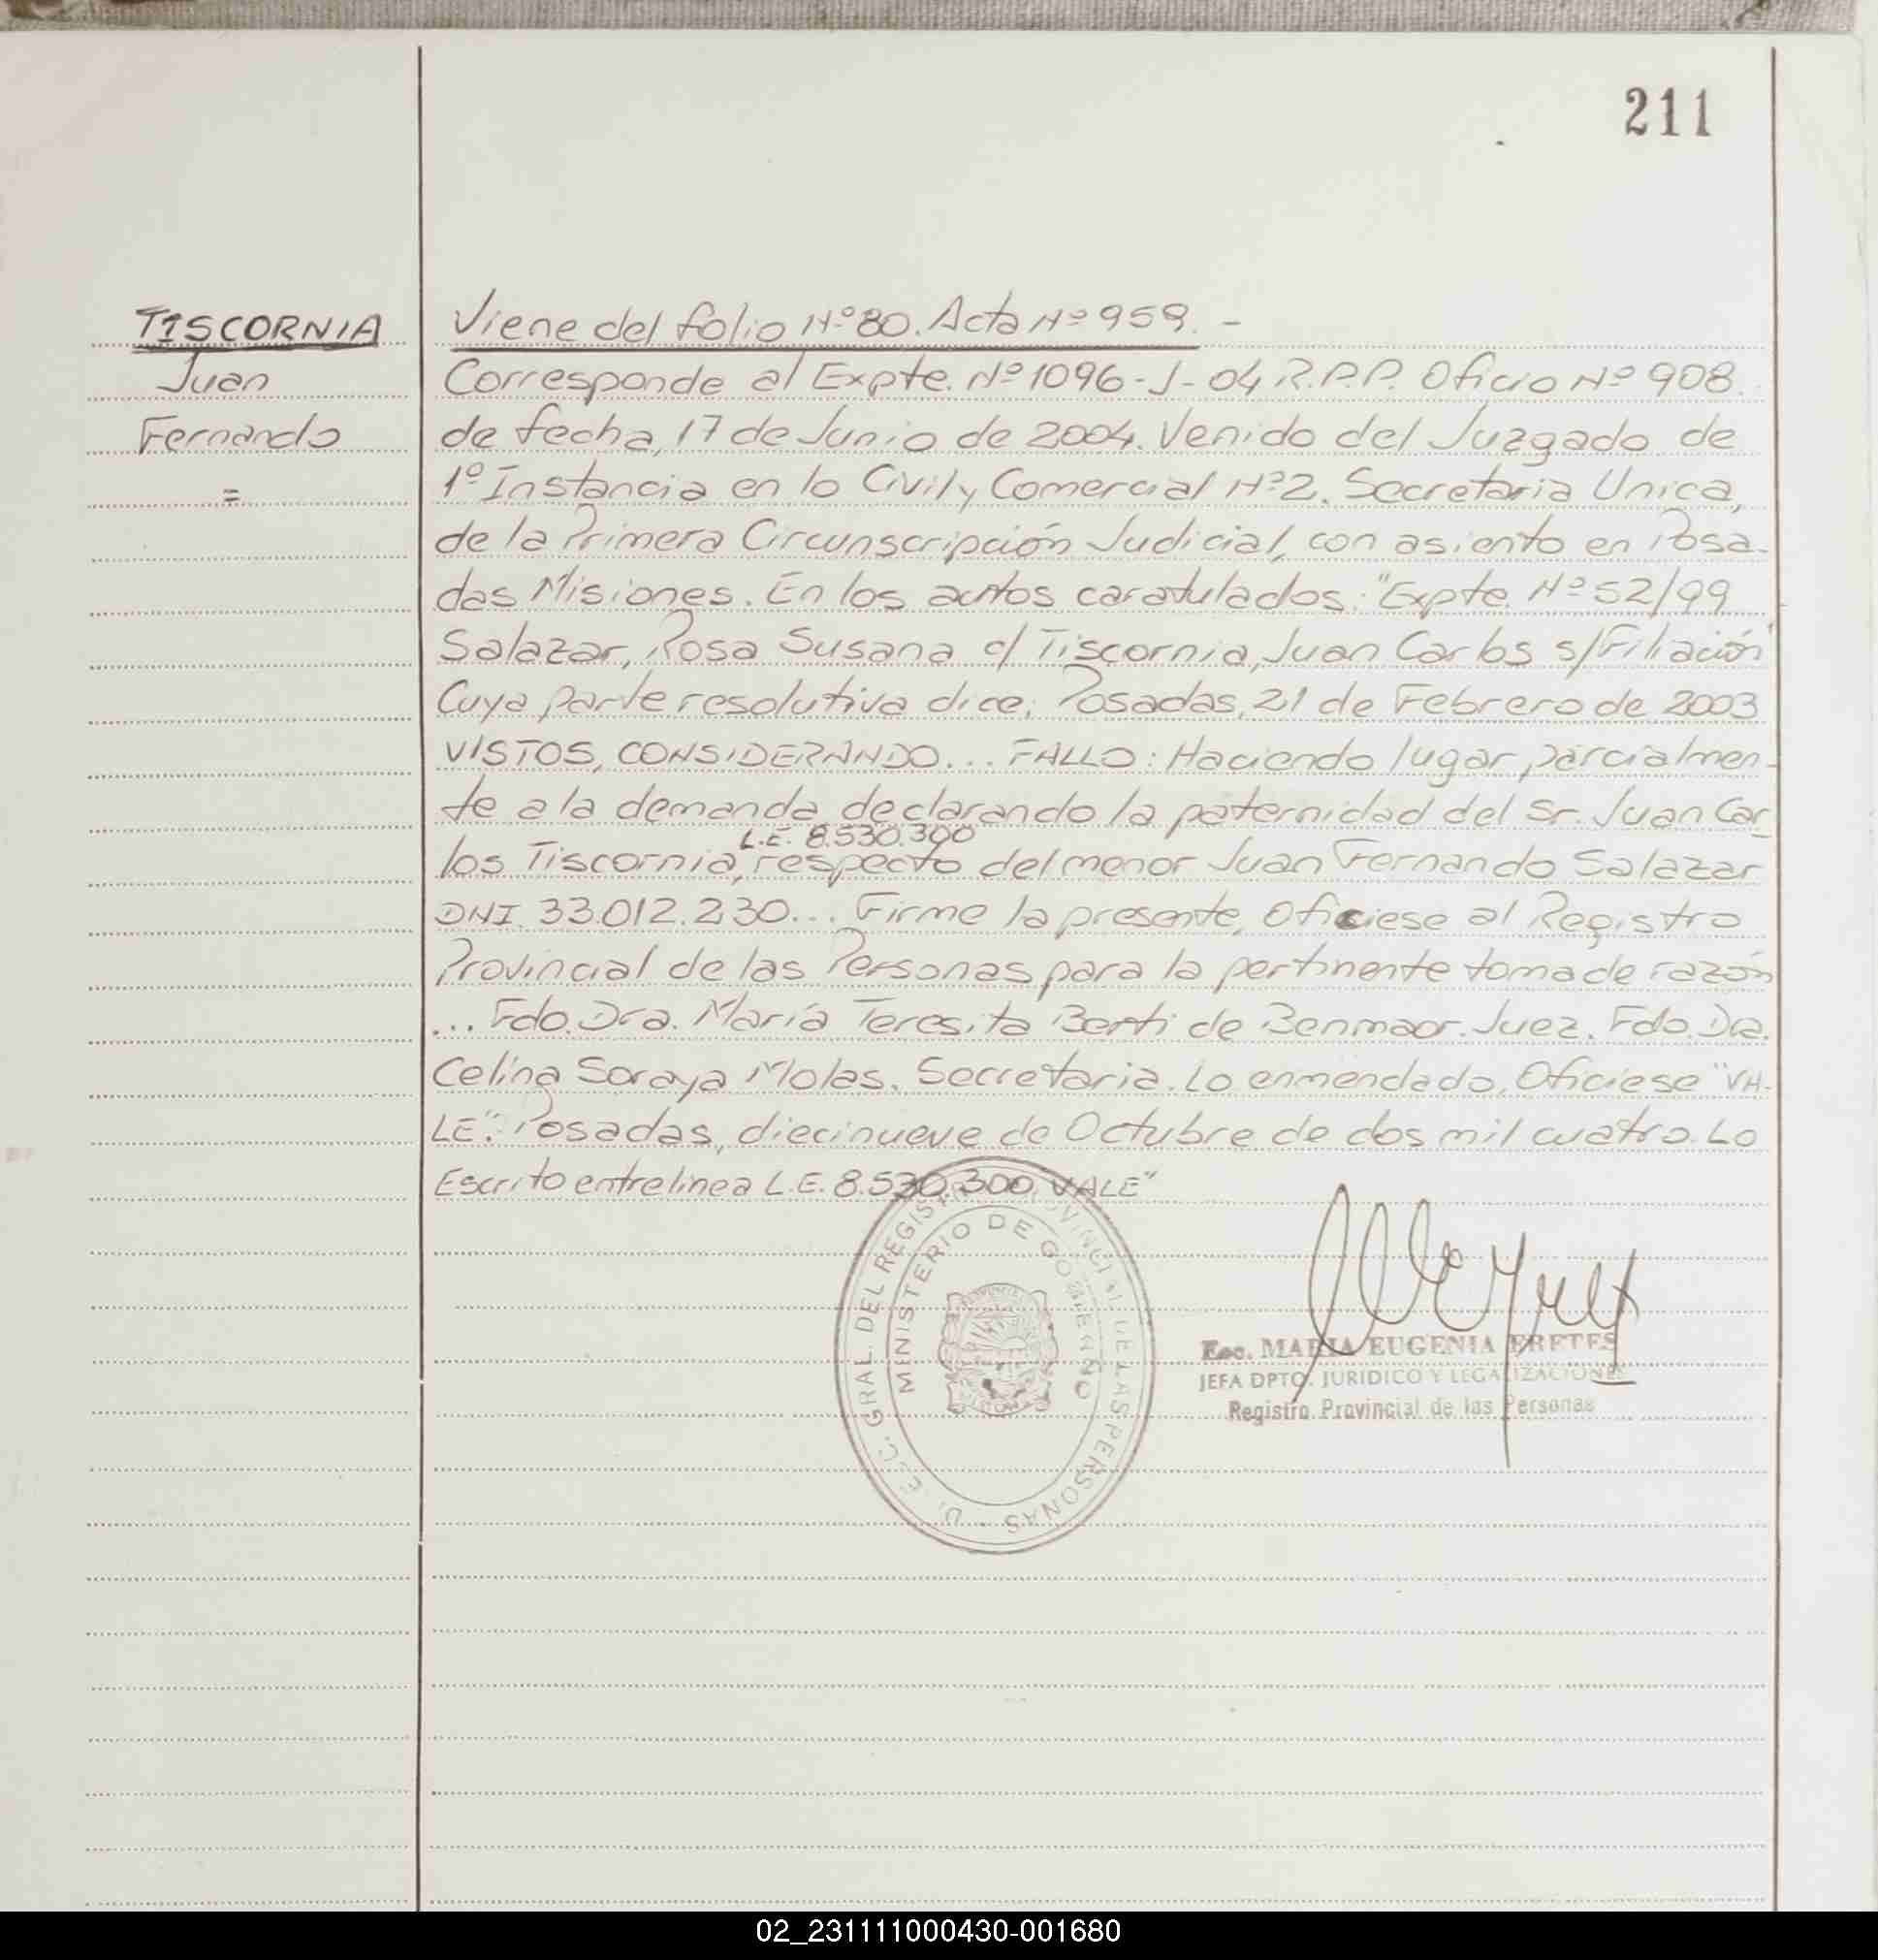 211
TISCORNIA
Juan
Fernando
=
Viene del folio Nº 80. Acta Nº 959. -
Corresponde al Expte. Nº 1096-J-04 R.P.P. Oficio Nº 908.
de fecha, 17 de Junio de 2004. Venido del Juzgado de
1º Instancia en lo Civil y Comercial Nº 2. Secretaria Unica,
de la Primera Circunscripción Judicial, con asiento en Posa-
das Misiones. En los autos caratulados: "Expte. Nº 52/99
Salazar, Rosa Susana c/ Tiscornia, Juan Carlos s/Filiación"
Cuya parte resolutiva dice: Posadas, 21 de Febrero de 2003
VISTOS, CONSIDERANDO... FALLO: Haciendo lugar parcialmen-
te a la demanda, declarando la paternidad del Sr. Juan Car_
L.E. 8.530.300
los Tiscornia, respecto del menor Juan Fernando Salazar
DNI. 33.012.230... Firme la presente, Oficiese al Registro
Provincial de las Personas para la pertinente toma de razón
... Fdo. Dra. María Teresita Berti de Benmaor. Juez. Fdo. Dra.
Celina Soraya Molas. Secretaria. Lo enmendado, Oficiese "VA-
LE". Posadas, diecinueve de Octubre de dos mil cuatro. Lo
Escrito entrelinea L.E. 8.530.300. VALE"
GRAL. DEL REGISTRO PROVINCIAL DE LAS PERSONAS
MINISTERIO DE GOBIERNO
Esc. MARIA EUGENIA FRETES
JEFA DPTO. JURIDICO Y LEGALIZACIONES
Registro Provincial de las Personas
02_231111000430-001680